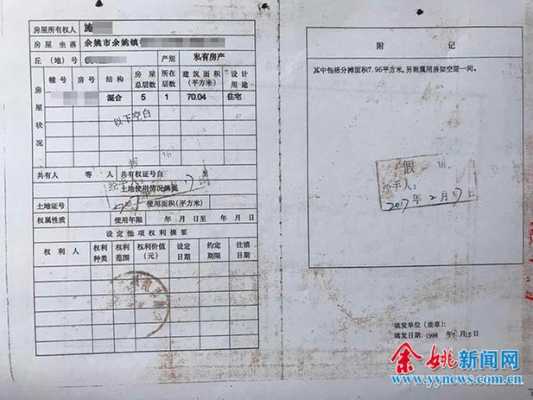 房屋所有权人 施
房屋坐落 余姚市余姚镇
丘（地）号 产别 私有房产
房屋状况
幢号 房号 结构 房屋总层数 所在层数 建筑面积（平方米） 设计用途
混合 5 1 70.04 住宅
以下空白
共有人 等 人 共有权证号自 至
土地使用情况摘要
土地证号 使用面积（平方米）
权属性质 使用年限 年 月 日至 年 月 日
设定他项权利摘要
权利人 权利种类 权利范围 权利价值（元） 设定日期 约定期限 注销日期
附 记
其中包括分摊面积7.96平方米，另附属用房架空层一间。
假
经手人：
2017年2月17日
填发单位（盖章）：
填发日期：1998年 月15日
余姚新闻网
www.yynews.com.cn